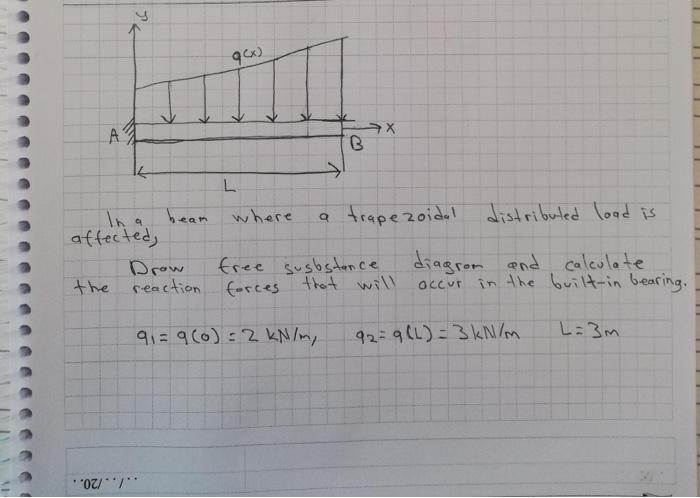 y
q(x)
A
x
B
L
In a beam where a trapezoidal distributed load is
affected,
Draw free susbstance diagram and calculate
the reaction forces that will occur in the built-in bearing.
q1 = q(0) = 2 kN/m, q2 = q(L) = 3 kN/m L = 3m
../../20..